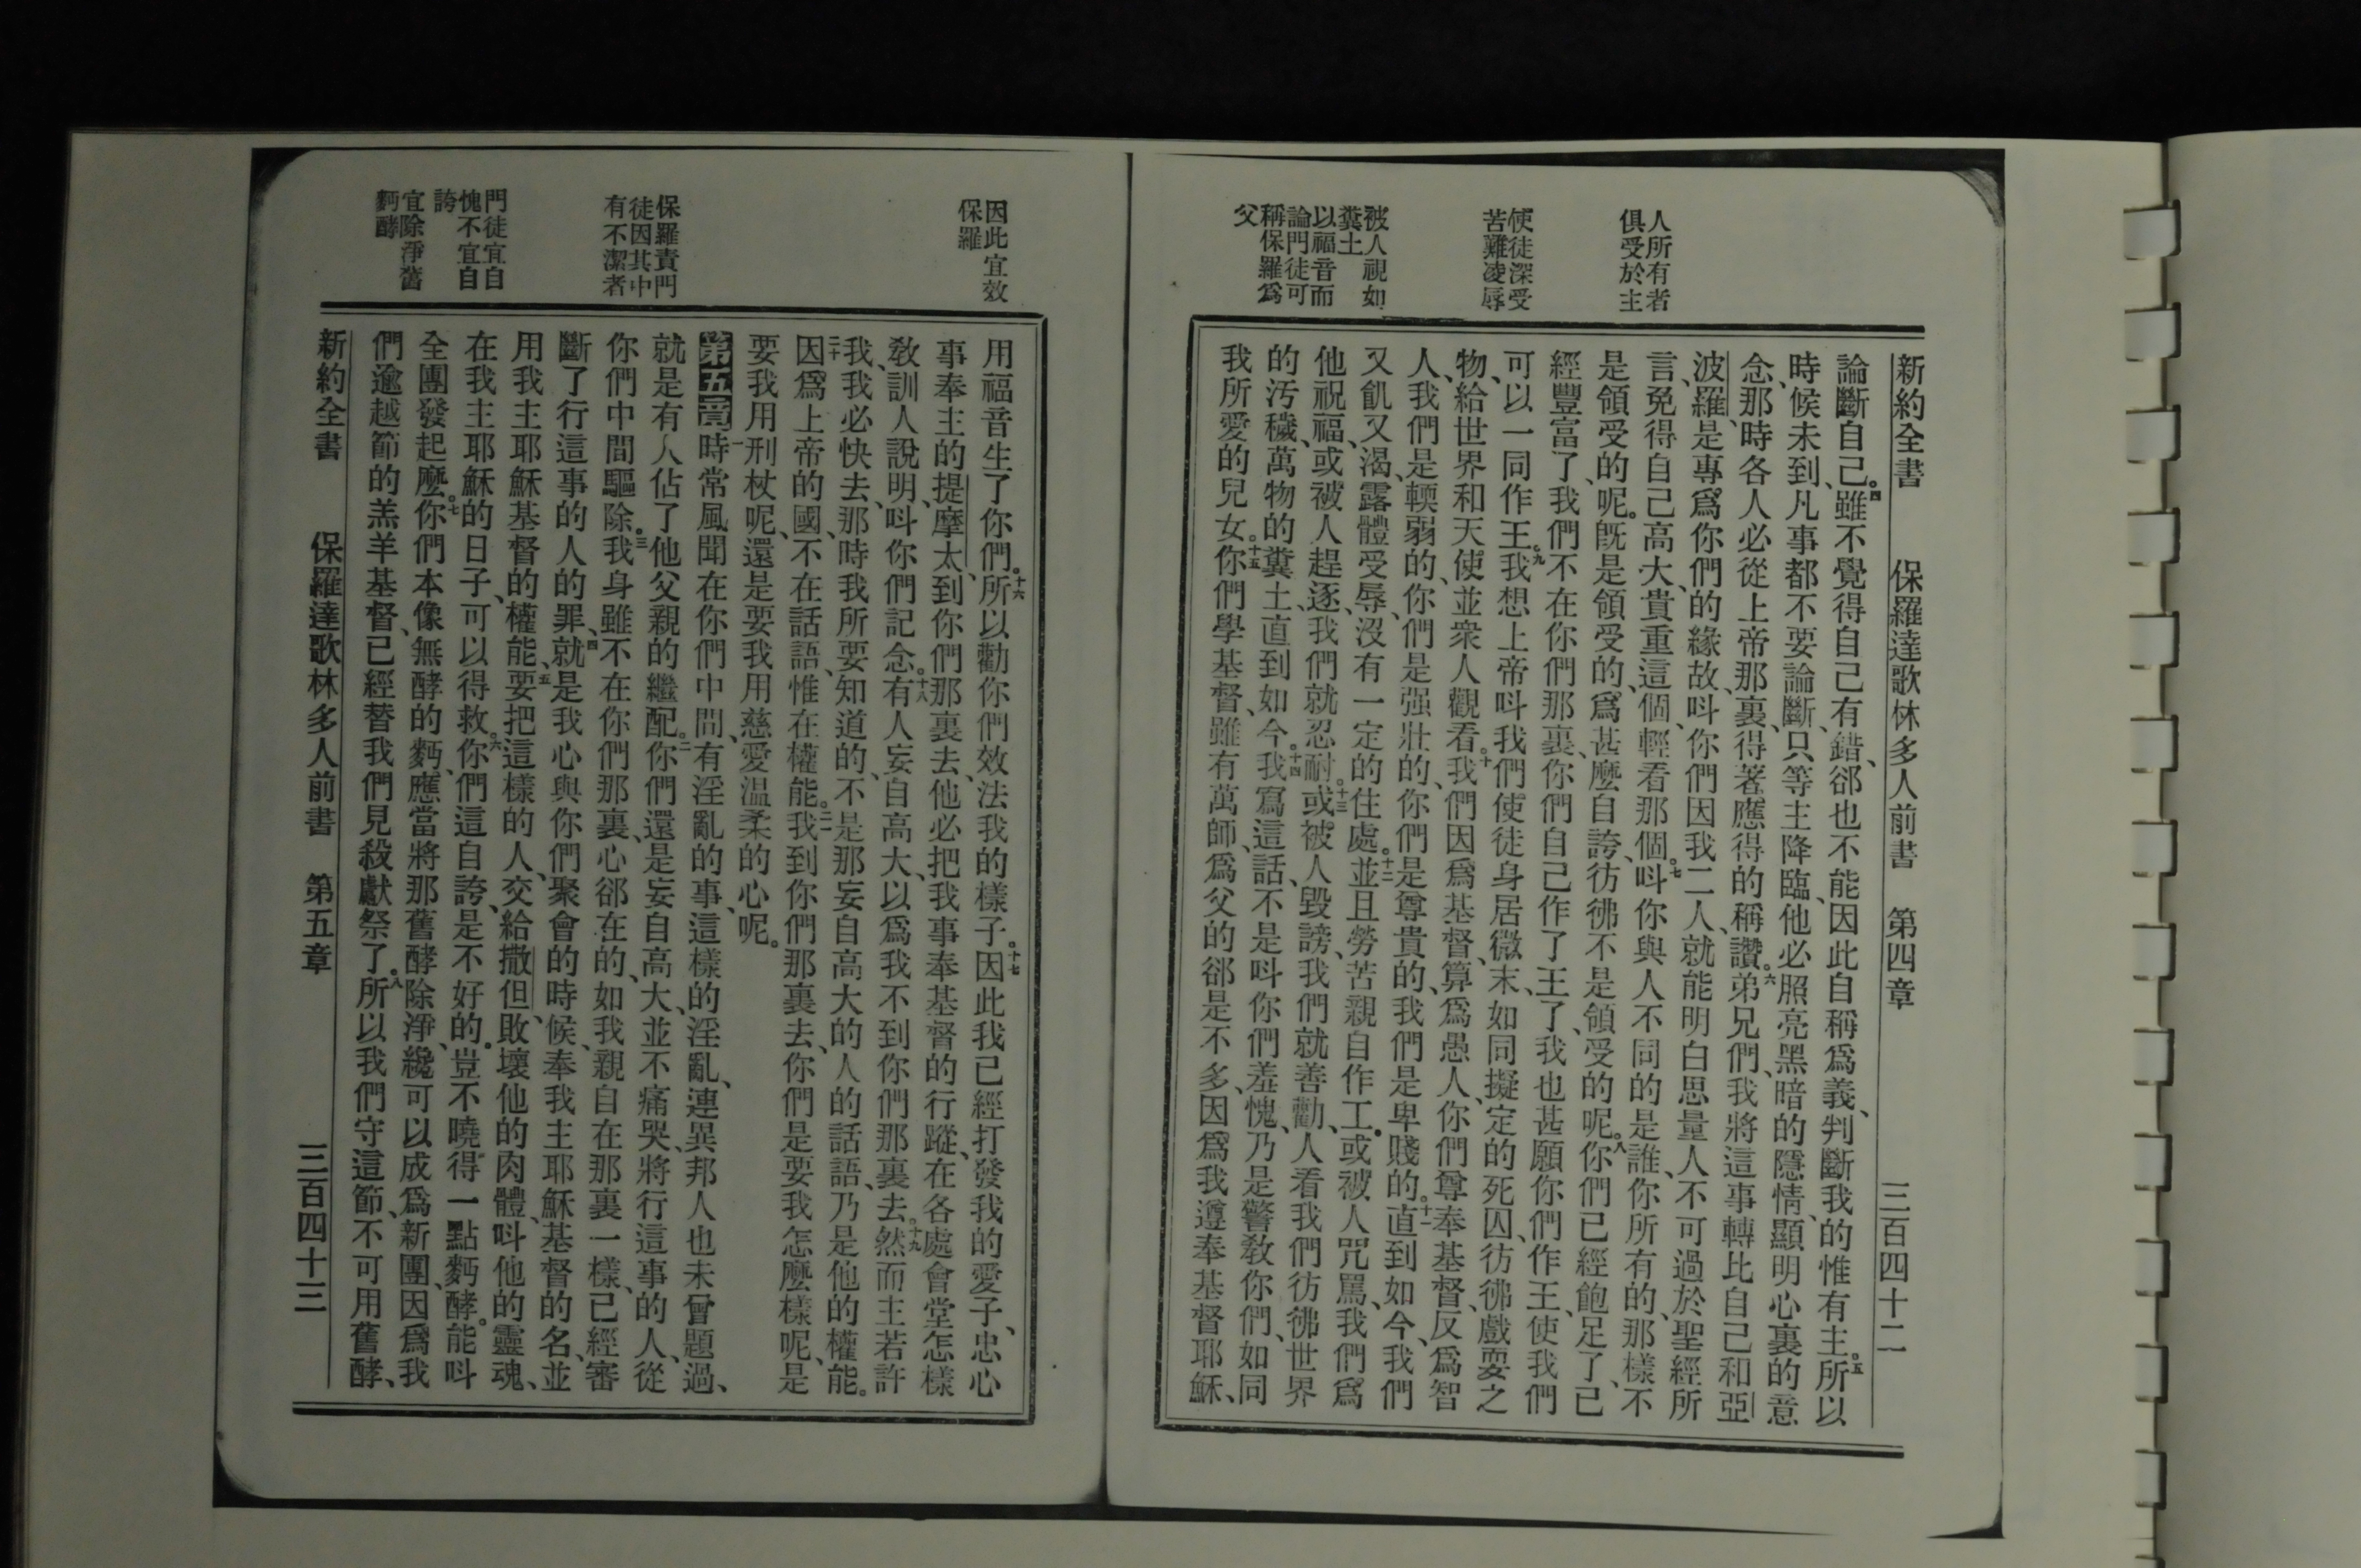 新約全書 保羅達歌林多人前書 第四章 三百四十二
人所有者
俱受於主
使徒深受
苦難凌辱
被人視如
糞土
以福音而
論門徒可
稱保羅爲
父
論斷自己。四雖不覺得自己有錯、郤也不能因此自稱爲義、判斷我的惟有主。五所以
時候未到、凡事都不要論斷、只等主降臨、他必照亮黑暗的隱情、顯明心裏的意
念、那時各人必從上帝那裏、得著應得的稱讚。六弟兄們、我將這事轉比自己和亞
波羅、是專爲你們的緣故、呌你們因我二人、就能明白思量人不可過於聖經所
言、免得自己高大、貴重這個、輕看那個。七呌你與人不同的是誰、你所有的、那樣不
是領受的呢。旣是領受的、爲甚麽自誇、彷彿不是領受的呢。八你們已經飽足了、已
經豐富了、我們不在你們那裏、你們自己作了王了、我也甚願你們作王、使我們
可以一同作王。九我想上帝呌我們使徒身居微末、如同擬定的死囚、彷彿戲耍之
物、給世界和天使、並衆人觀看。十我們因爲基督、算爲愚人、你們尊奉基督、反爲智
人、我們是輭弱的、你們是强壯的、你們是尊貴的、我們是卑賤的。十一直到如今、我們
又飢又渴、露體受辱、沒有一定的住處。十二並且勞苦親自作工。或被人咒罵、我們爲
他祝福、或被人趕逐、我們就忍耐。十三或被人毀謗、我們就善勸、人看我們彷彿世界
的汚穢、萬物的糞土、直到如今。十四我寫這話、不是呌你們羞愧、乃是警敎你們、如同
我所愛的兒女。十五你們學基督、雖有萬師、爲父的郤是不多、因爲我遵奉基督耶穌、
因此宜效
保羅
保羅責門
徒因其中
有不潔者
門徒宜自
愧不宜自
誇
宜除淨舊
麪酵
用福音生了你們。十六所以勸你們效法我的樣子。十七因此我已經打發我的愛子、忠心
事奉主的提摩太、到你們那裏去、他必把我事奉基督的行蹤、在各處會堂怎樣
敎訓人說明、呌你們記念。十八有人妄自高大、以爲我不到你們那裏去。十九然而主若許
我、我必快去、那時我所要知道的、不是那妄自高大的人的話語、乃是他的權能。
二十因爲上帝的國、不在話語、惟在權能。二一我到你們那裏去、你們是要我怎麽樣呢、是
要我用刑杖呢、還是要我用慈愛温柔的心呢。
第五章 一時常風聞在你們中間、有淫亂的事、這樣的淫亂、連異邦人也未曾題過、
就是有人佔了他父親的繼配。二你們還是妄自高大、並不痛哭、將行這事的人、從
你們中間驅除。三我身雖不在你們那裏、心郤在的、如我親自在那裏一樣、已經審
斷了行這事的人的罪、四就是我心與你們聚會的時候、奉我主耶穌基督的名、並
用我主耶穌基督的權能、五要把這樣的人、交給撒但、敗壞他的肉體、呌他的靈魂、
在我主耶穌的日子、可以得救。六你們這自誇、是不好的。豈不曉得一點麪酵。能呌
全團發起麽。七你們本像無酵的麪、應當將那舊酵除淨、纔可以成爲新團、因爲我
們逾越節的羔羊基督、已經替我們見殺獻祭了。八所以我們守這節、不可用舊酵、
新約全書 保羅達歌林多人前書 第五章 三百四十三